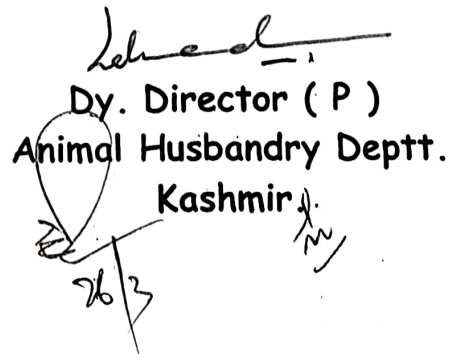 Dy. Director ( P )
Animal Husbandry Deptt.
Kashmir.
26/3